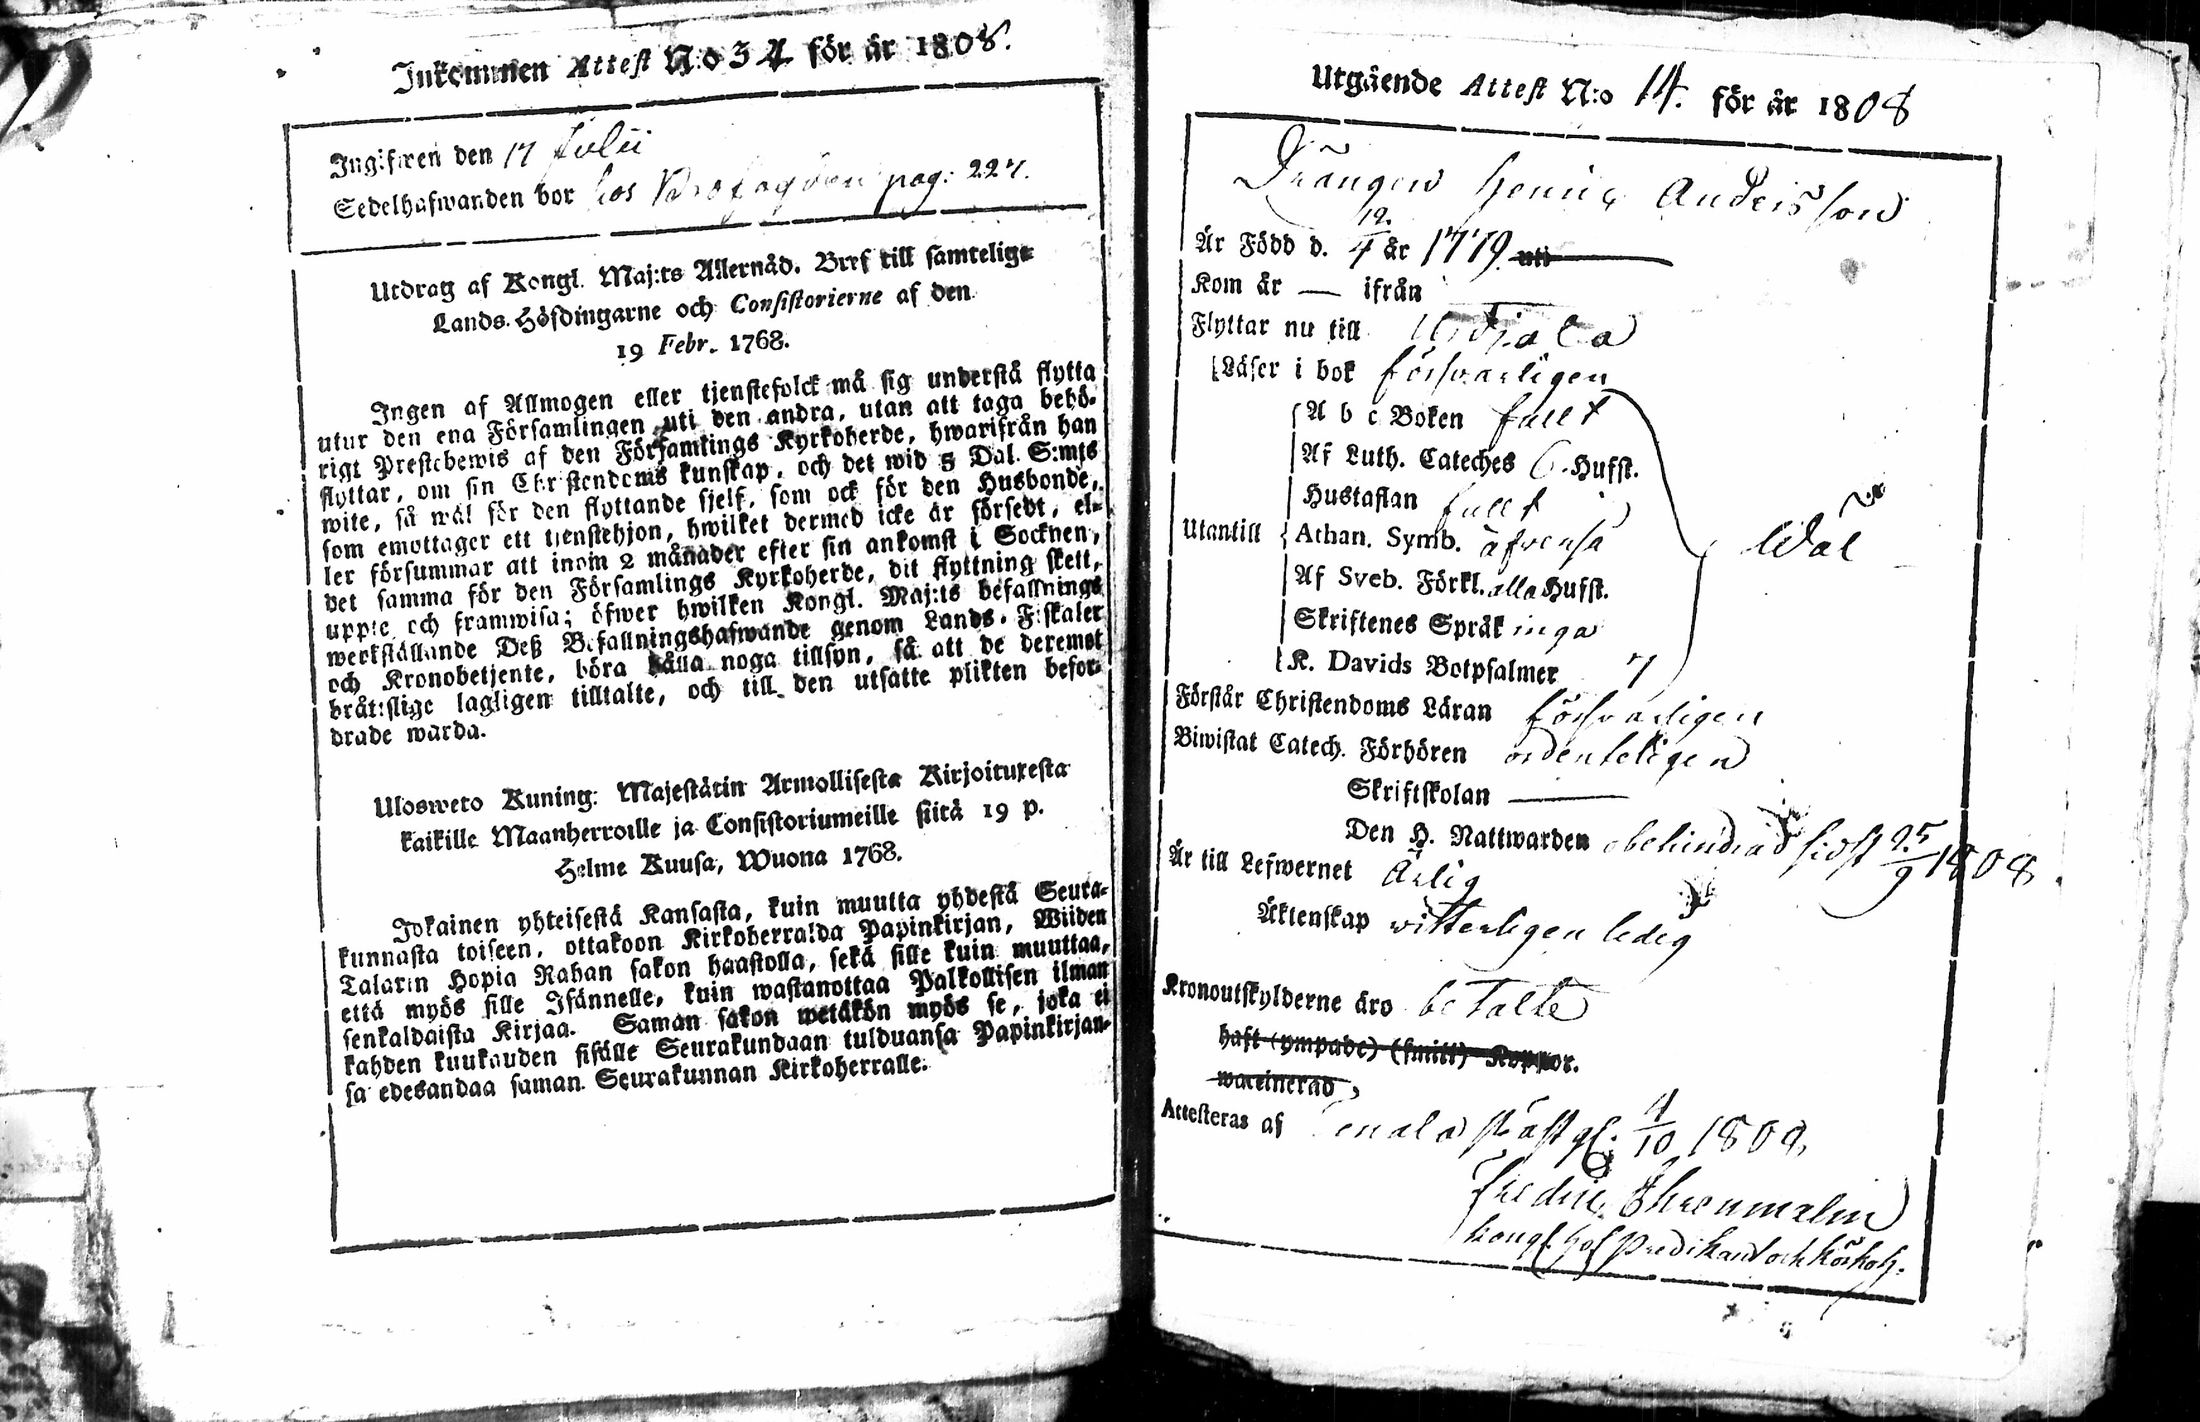 Inkommen Attest N:o 34 för år 1808.
Ingifwen den 17 Julii
Sedelhafwanden bor hos pag: 227.
Utdrag af Kongl. Maj:ts Allernåd. Bref till samtelige
Lands-Höfdingarne och Consistorierne af den
19 Febr. 1768.
Ingen af Allmogen eller tjenstefolck må sig understå flytta
utur den ena Församlingen uti den andra, utan att taga behö-
rigt Prestebewis af den Församlings Kyrkoherde, hwarifrån han
flyttar, om sin Christendoms kunskap, och det wid 5 Dal. S:mts
wite, så wäl för den flyttande sjelf, som ock för den Husbonde,
som emottager ett tjenstehjon, hwilket dermed icke är försedt, el-
ler försummar att inom 2 månader efter sin ankomst i Socknen,
det samma för den Församlings Kyrkoherde, dit flyttning skett,
uppte och framwisa; öfwer hwilken Kongl. Maj:ts befallnings
werkställande Deß Befallningshafwande genom Lands-Fiskaler
och Kronobetjente, böra hålla noga tillsyn, så att de deremot
bråttslige lagligen tilltalte, och till den utsatte plikten befor-
drade warda.
Ulosweto Kuning: Majestätin Armollisesta Kirjoituxesta
kaikille Maanherroille ja Consistoriumeille siitä 19 p.
Helme Kuusa, Wuona 1768.
Jokainen yhteisestä Kansasta, kuin muutta yhdestä Seura-
kunnasta toiseen, ottakoon Kirkoherralda Papinkirjan, Wiiden
Talarin Hopia Rahan sakon haastolla, sekä sille kuin muuttaa,
että myös sille Isännelle, kuin wastanottaa Palkollisen ilman
senkaldaista Kirjaa. Saman sakon wetäkön myös se, joka ei
kahden kuukauden sisälle Seurakundaan tulduansa Papinkirjan-
sa edesandaa saman Seurakunnan Kirkoherralle.
Utgående Attest N:o 14. för år 1808
Drängen Henric Andersson
Är Född d. 12/4 år 1779 uti
Kom år — ifrån
Flyttar nu till Urdjala
Läser i bok försvarligen
A b c Boken fullt
Af Luth. Cateches 6. Hufst.
Hustaflan fullt
Utantill Athan. Symb. äfvenså Wäl
Af Sveb. Förkl. alla Hufst.
Skriftenes Språk inga
K. Davids Botpsalmer 7
Förstår Christendoms Läran försvarligen
Biwistat Catech. Förhören ordenteligen
Skriftskolan —
Den H. Nattwarden obehindrad sidst 25/9 1808
Är till Lefwernet Ärlig
Äktenskap witterligen ledig
Kronoutskylderne äro betalte
haft (ympade) (smitt) Koppor.
waccinerad
Attesteras af Tenala prästgl. 4/10 1808
Fredric Ehrenmalm
Kongl. Hof Predikant och Körkoh.